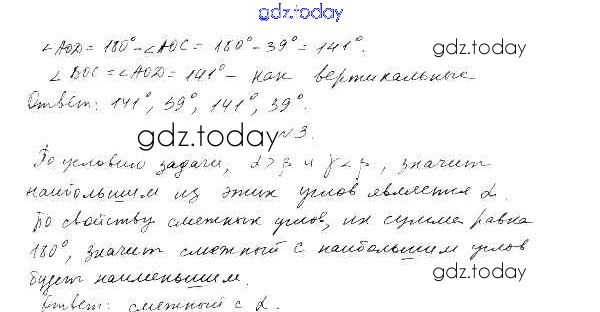 gdz.today
∠AOD = 180° - ∠AOC = 180° - 39° = 141°.
gdz.today
∠BOC = ∠AOD = 141° - как вертикальные
Ответ: 141°, 39°, 141°, 39°.
gdz.today
№3.
По условию задачи, α > β и γ < β, значит
наибольшим из этих углов является α.
По свойству смежных углов, их сумма равна
gdz.today
180°, значит смежный с наибольшим углов
будет наименьшим.
gdz.today
Ответ: смежный с α.